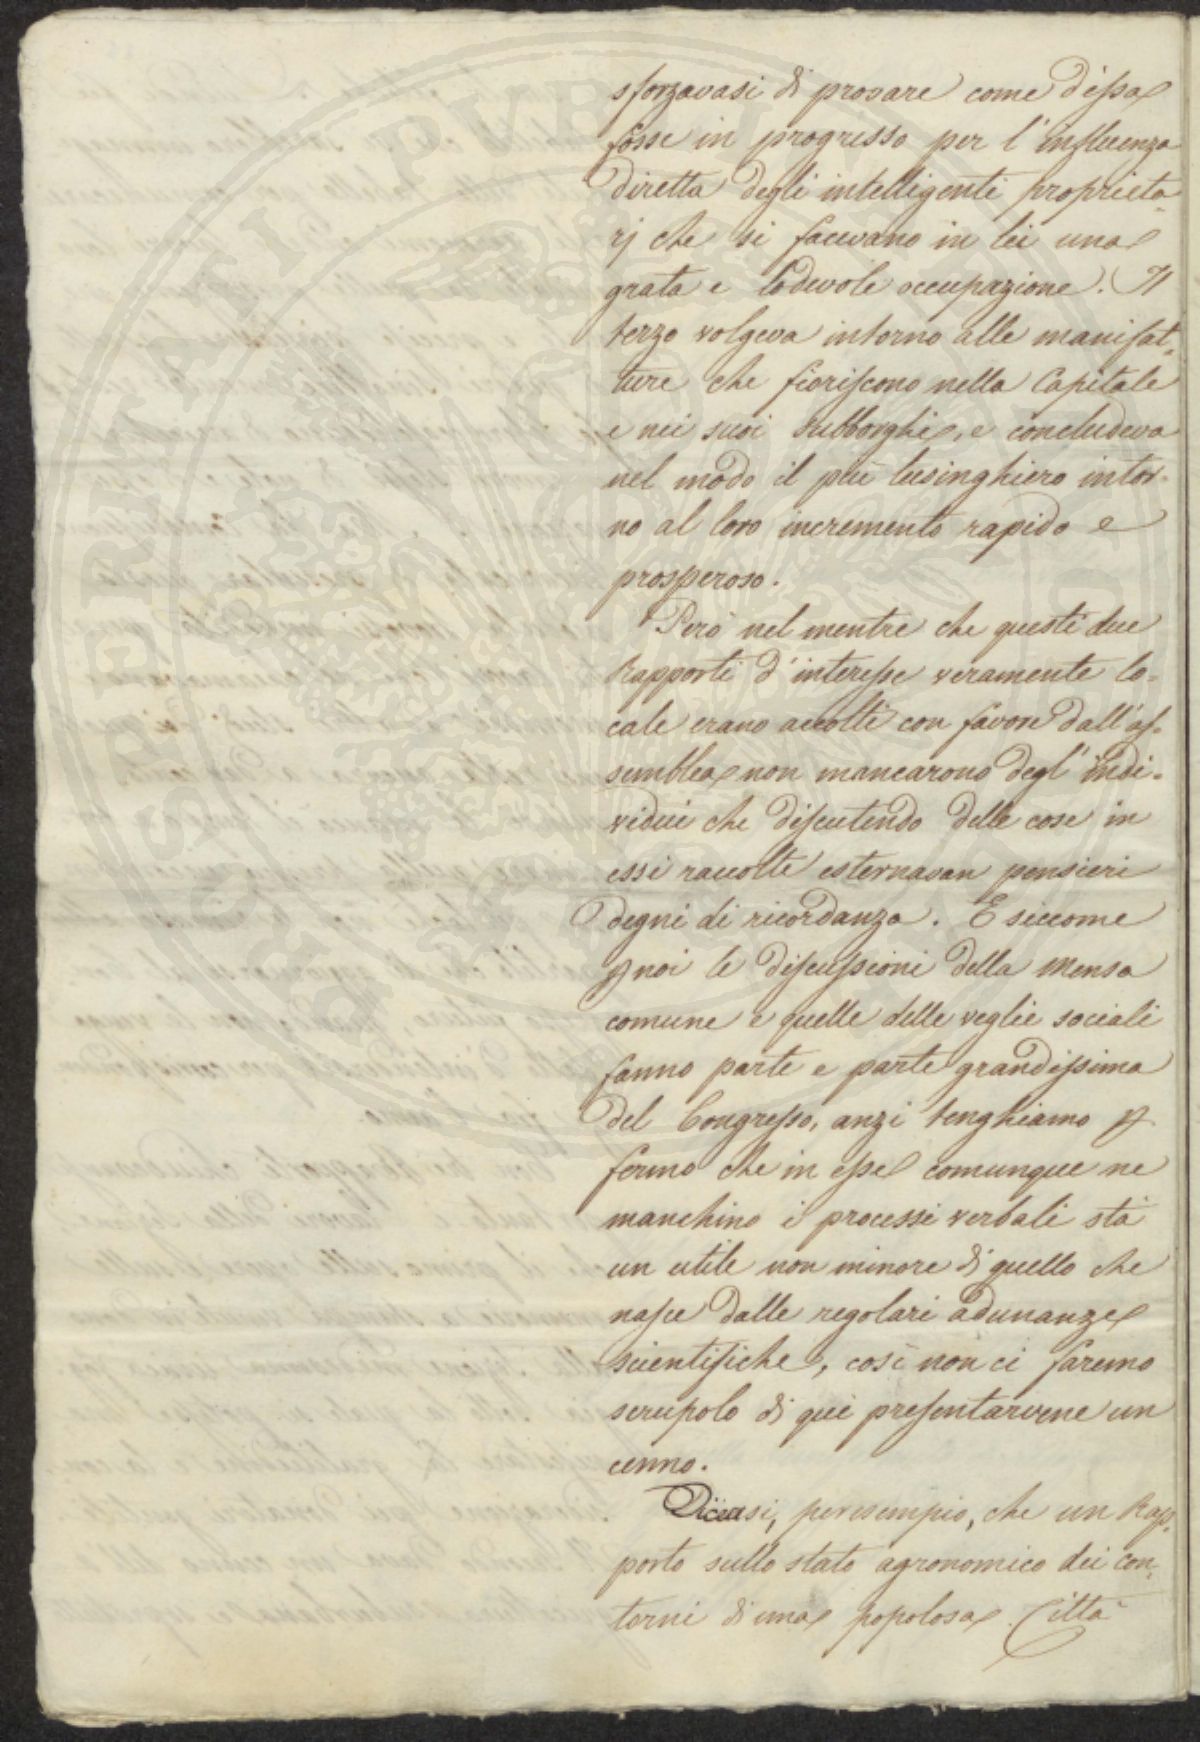 sforzavasi di provare come d'essa
fosse in progresso per l'influenza
diretta degli intelligenti proprieta-
rj che si facevano in lei una
grata e lodevole occupazione. Il
terzo volgeva intorno alle manifat-
ture che fioriscono nella Capitale
e nei suoi subborghi, e concludeva
nel modo il più lusinghiero intor-
no al loro incremento rapido e
prosperoso.
Però nel mentre che questi due
Rapporti d'interesse veramente lo-
cale erano accolti con favore dall'as-
semblea non mancarono degl'indi-
vidui che discutendo delle cose in
essi raccolte esternavan pensieri
degni di ricordanza. E siccome
p noi le discussioni della mensa
comune e quelle delle veglie sociali
fanno parte e parte grandissima
del Congresso, anzi tenghiamo p
fermo che in esse comunque ne
manchino i processi verbali stà
un utile non minore di quello che
nasce dalle regolari adunanze
scientifiche, così non ci faremo
scrupolo di quì presentarvene un
cenno.
Dicevasi, per esempio, che un Rap-
porto sullo stato agronomico dei con-
torni di una popolosa Città